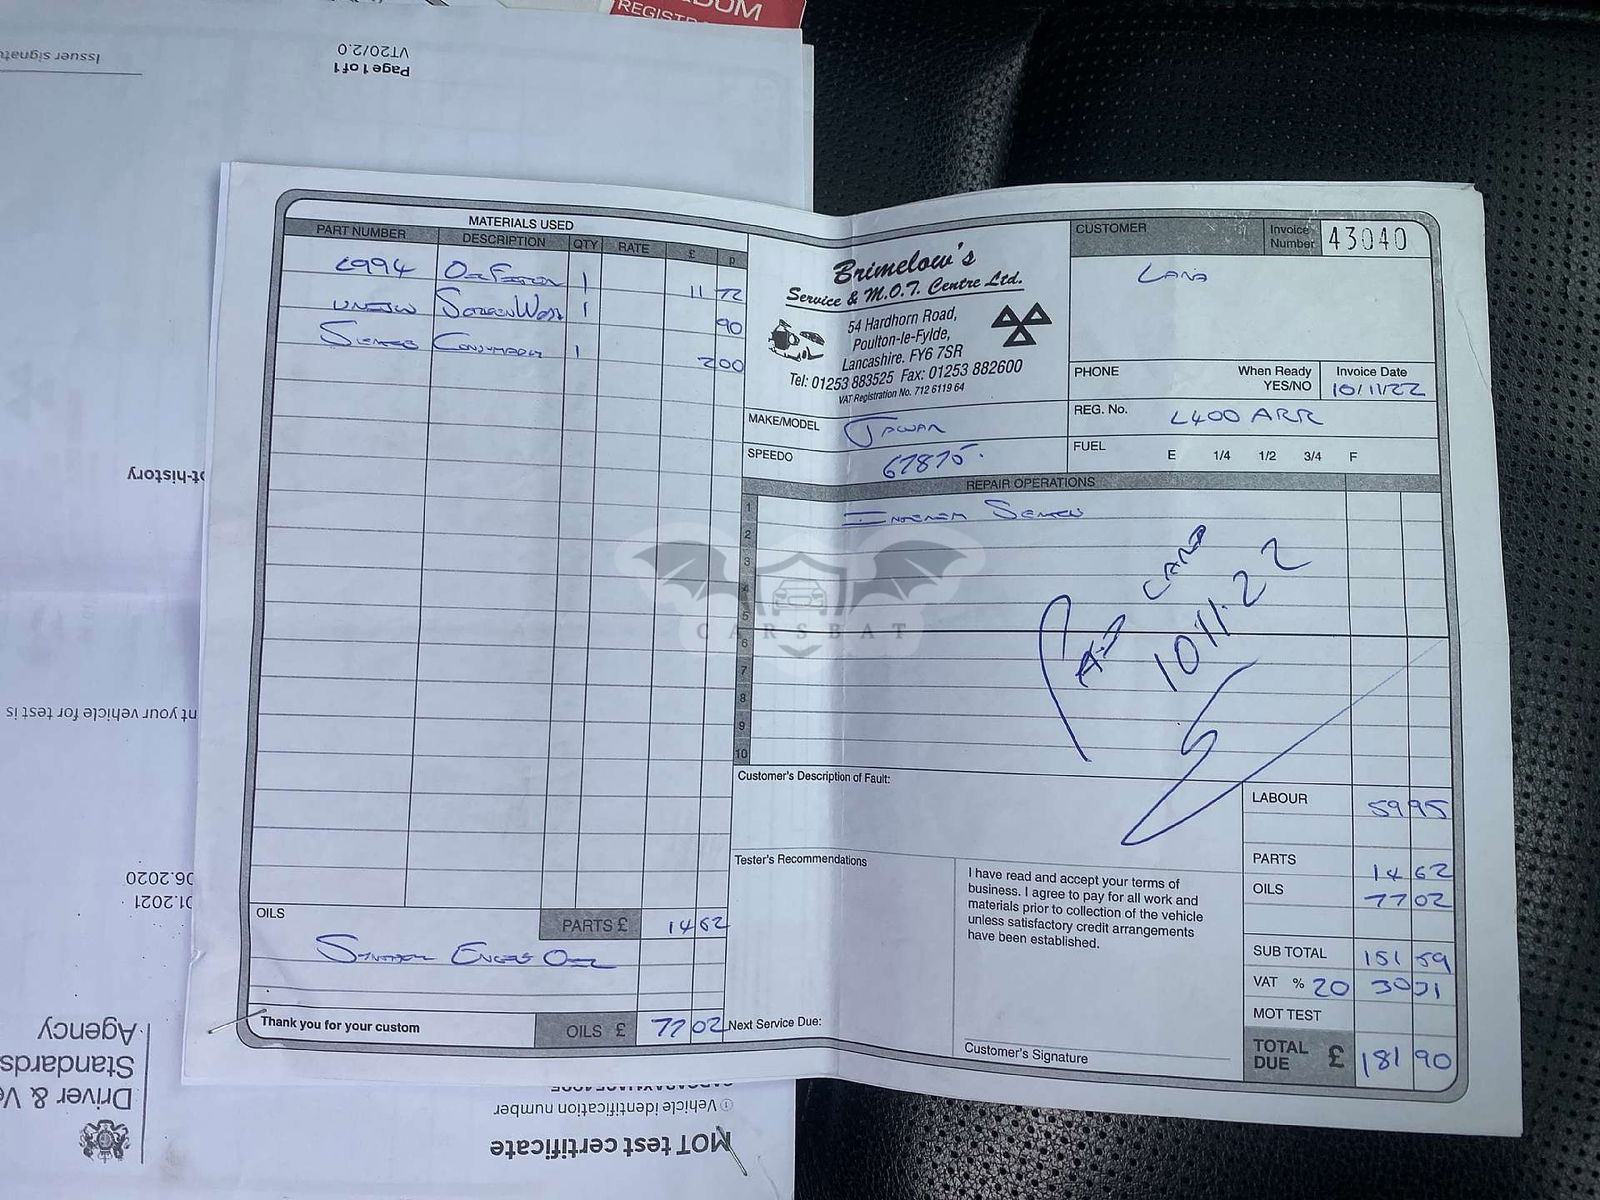 DOM
REGISTR
Issuer signatu
VT20/2.0
Page 1 of 1
MATERIALS USED
PART NUMBER DESCRIPTION QTY RATE £ p
L994 1 11 72
1 90
1 2 00
OILS
PARTS £ 14 62
Thank you for your custom
OILS £ 77 02
Brimelow's
Service & M.O.T. Centre Ltd.
54 Hardhorn Road,
Poulton-le-Fylde,
Lancashire. FY6 7SR
Tel: 01253 883525 Fax: 01253 882600
VAT Registration No. 712 6119 64
CUSTOMER
Invoice Number 43040
PHONE
When Ready YES/NO
Invoice Date
10/11/22
MAKE/MODEL
REG. No. L400 ARR
SPEEDO 67875.
FUEL E 1/4 1/2 3/4 F
REPAIR OPERATIONS
1
2
3
4
5
6
7
8
9
10
CARD
10.11.22
CARSBAT
Customer's Description of Fault:
Tester's Recommendations
Next Service Due:
I have read and accept your terms of
business. I agree to pay for all work and
materials prior to collection of the vehicle
unless satisfactory credit arrangements
have been established.
Customer's Signature
LABOUR 59 95
PARTS 14 62
OILS 77 02
SUB TOTAL 151 59
VAT % 20 30 31
MOT TEST
TOTAL DUE £ 181 90
t-history
nt your vehicle for test is
06.2020
01.2021
Driver & Ve
Standards
Agency
MOT test certificate
Vehicle identification number